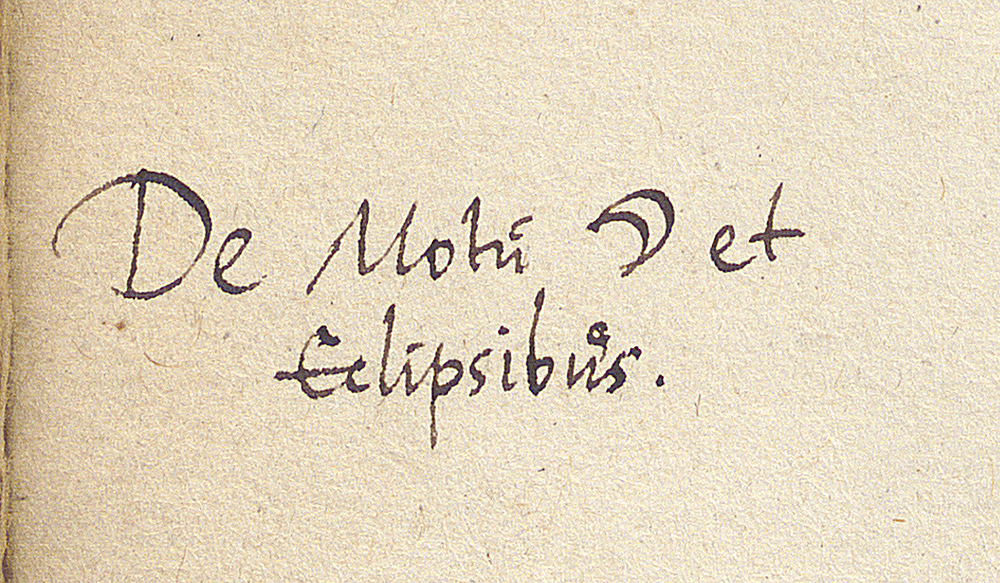 De Motu ☽ et
Eclipsibus.